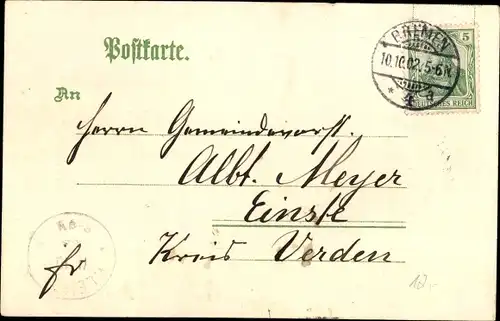 Postkarte.
5
BREMEN
10.10.02. 5-6N.
* 4 a
DEUTSCHES REICH
An
Herrn Gemeindevorst.
Albt. Meyer
Einste
fr Kreis Verden
12.-